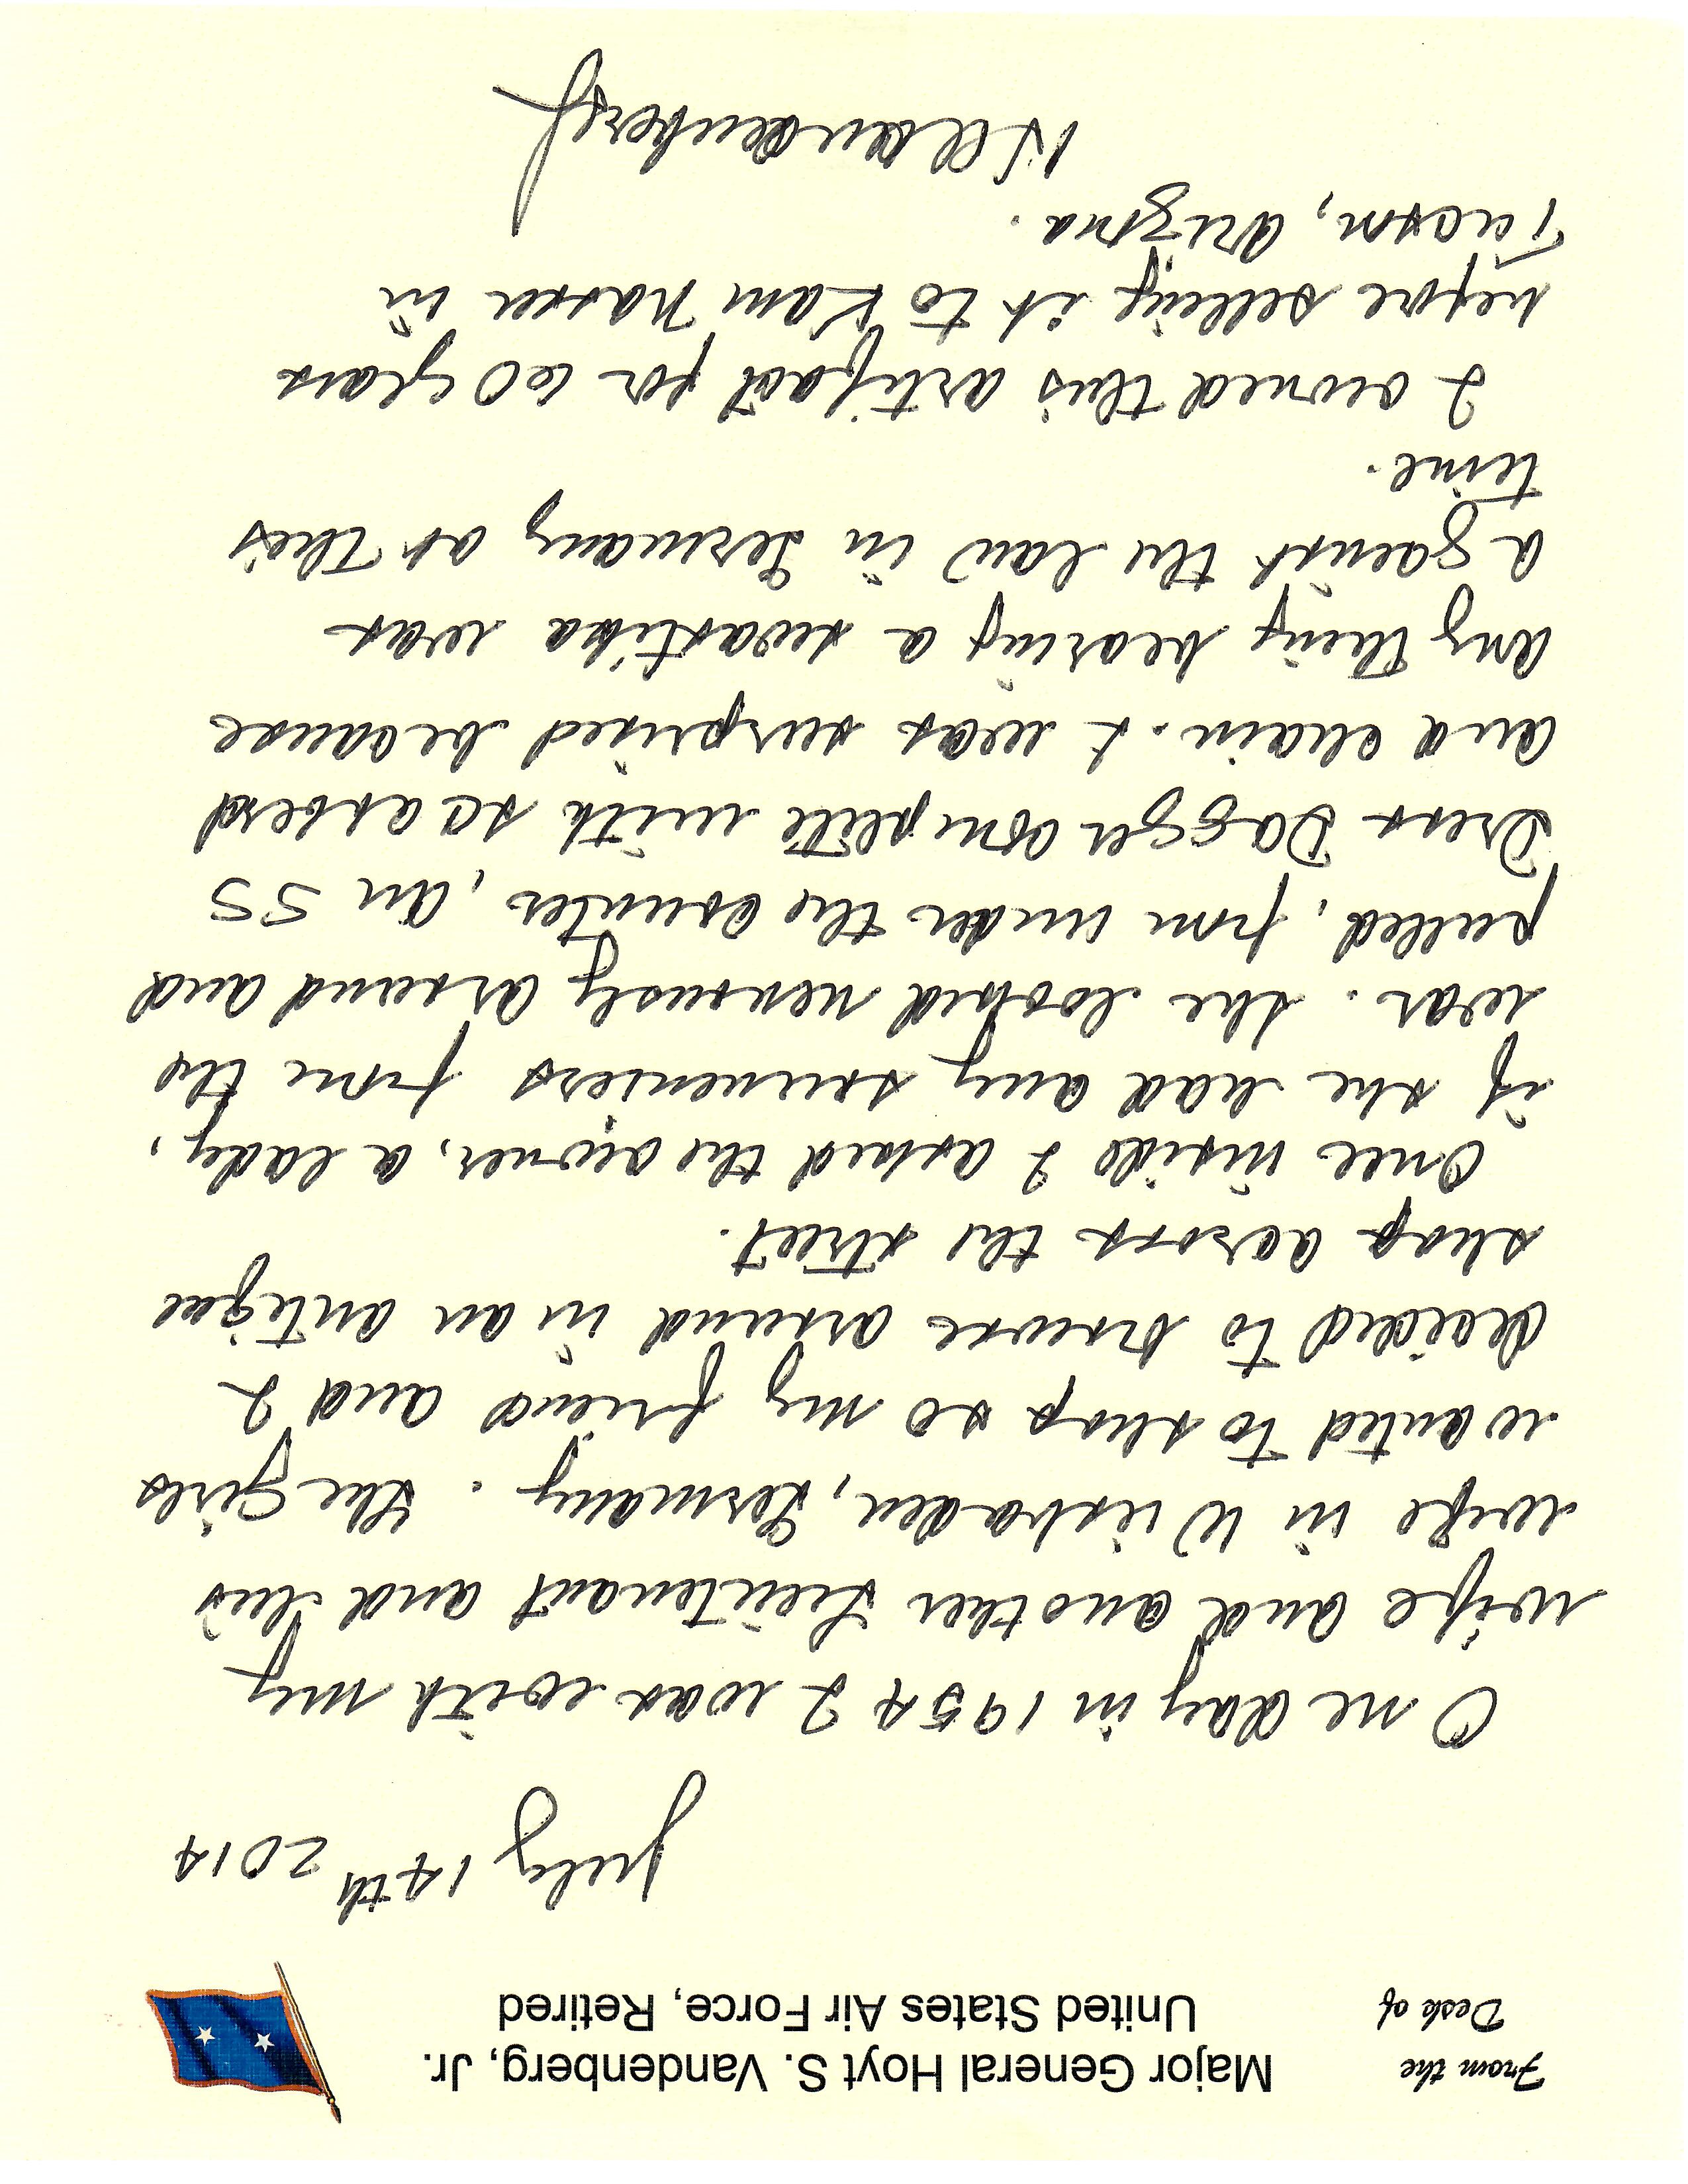 From the
Desk of
Major General Hoyt S. Vandenberg, Jr.
United States Air Force, Retired
July 14th 2014
One day in 1954 I was with my
wife and another Lieutenant and his
wife in Wiesbaden, Germany. The girls
wanted to shop so my friend and I
decided to browse around in an antique
shop across the street.
Once inside I asked the owner, a lady,
if she had any souveniers from the
war. She looked nervously around and
pulled, from under the counter, an SS
Dress Dagger complete with scabberd
and chain. I was surprised because
any thing bearing a swastika was
against the law in Germany at this
time.
I owned this artifact for 60 years
before selling it to Kam Nasser in
Tucson, Arizona.
HSVandenberg